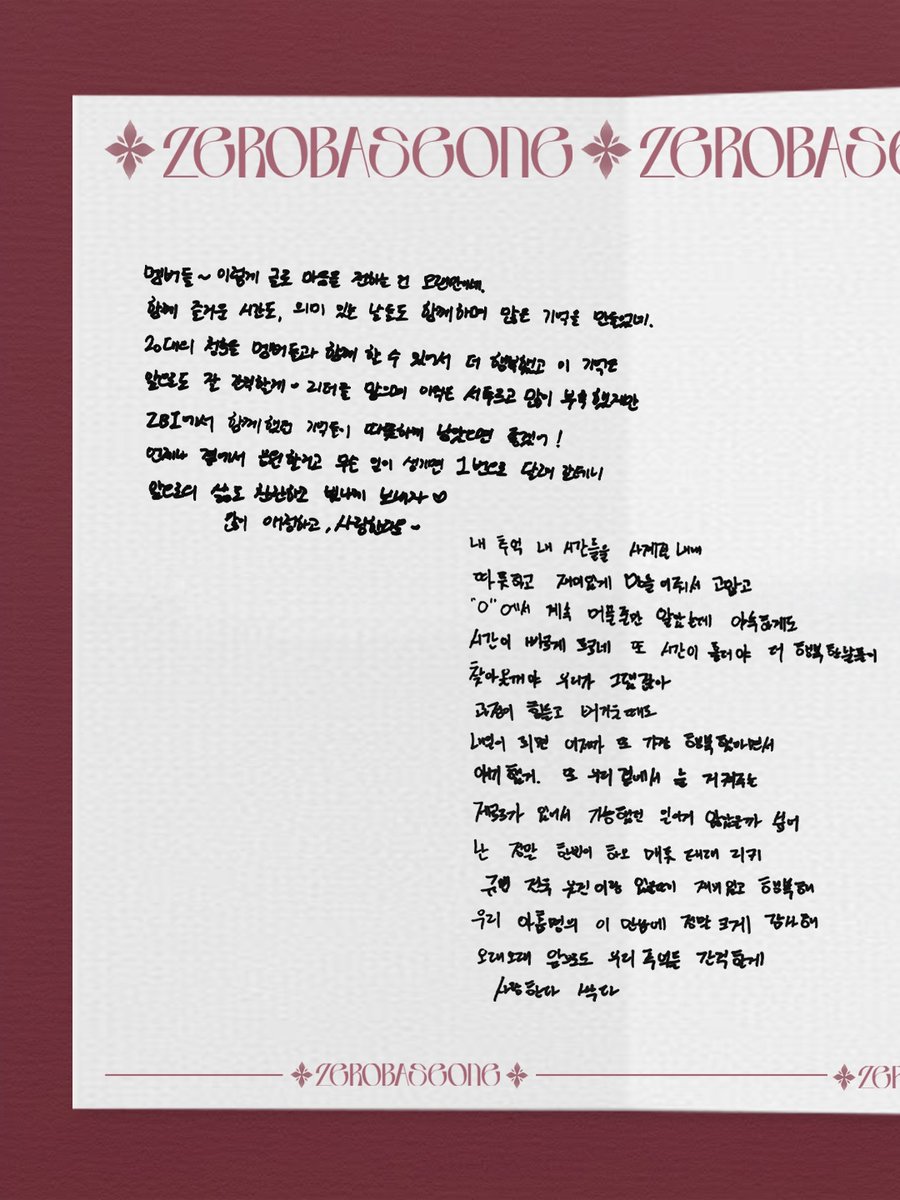 ZEROBASEONE ZEROBASE
멤버들~ 이렇게 글로 마음을 전하는 건 오랜만이네.
함께 즐거운 시간도, 의미 있는 날들도 함께하며 많은 기억을 만들었네.
20대의 청춘을 멤버들과 함께 할 수 있어서 더 행복했고 이 기억은
앞으로도 잘 간직할게~ 리더를 맡으며 아직은 서투르고 많이 부족했지만
ZB1에서 함께했던 기억들이 따뜻하게 남았으면 좋겠어!
언제나 곁에서 응원할거고 무슨 일이 생기면 1번으로 달려 갈테니
앞으로의 삶도 찬란하고 빛나게 보내자♡
많이 애정하고, 사랑한다~
내 추억 내 시간들을 사계로 내내
따뜻하고 재미있게 만들어줘서 고맙고
"0"에서 계속 머물줄만 알았는데 아속하게도
시간이 빠르게 흐르네 또 시간이 흘러야 더 행복한 날들이
찾아올거야 우리가 그랬잖아
과정이 힘들고 버거울 때도
내면서 가장 행복
했거. 또 우리 곁에서 늘 지켜주는
제로즈가 있어서 가능했던 일이지 않았을까 싶어
난 정말 한빈이 하오 매튜 태래 리키
규빈 건욱 유진이랑 있을때가 재미있고 행복해
우리 아홉명의 이 만남에 정말 크게 감사해
오래오래 앞으로도 우리 추억들 간직할게
사랑한다 싸다
ZEROBASEONE ZER